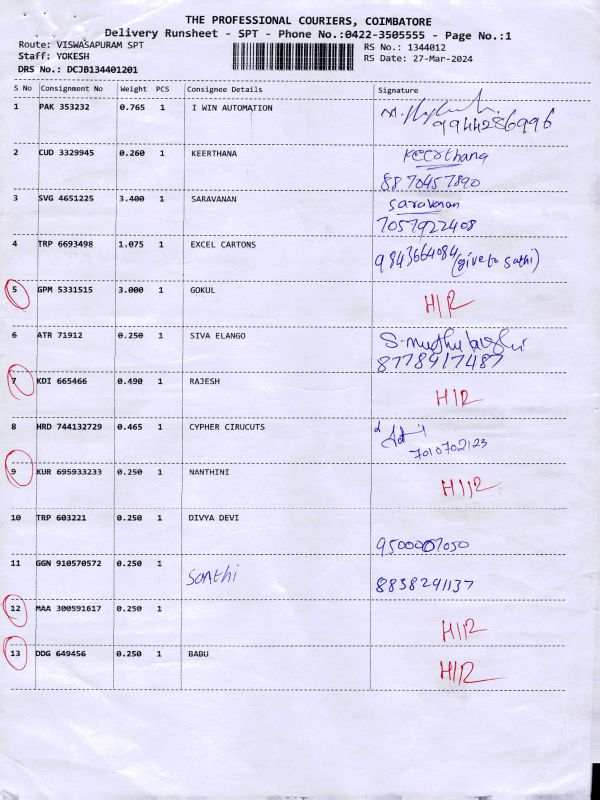 THE PROFESSIONAL COURIERS, COIMBATORE
Delivery Runsheet - SPT - Phone No.:0422-3505555 - Page No.:1
Route: VISWASAPURAM SPT
RS No.: 1344012
Staff: YOKESH
RS Date: 27-Mar-2024
DRS No.: DCJB134401201
S No Consignment No Weight PCS Consignee Details Signature
1 PAK 353232 0.765 1 I WIN AUTOMATION
9944286996
2 CUD 3329945 0.260 1 KEERTHANA Keerthana
8870457890
3 SVG 4651225 3.400 1 SARAVANAN Saravanan
7057922408
4 TRP 6693498 1.075 1 EXCEL CARTONS 9843664084 (give to sathi)
5 GPM 5331515 3.000 1 GOKUL H/R
6 ATR 71912 0.250 1 SIVA ELANGO
8778917487
7 KDI 665466 0.490 1 RAJESH H/R
8 HRD 744132729 0.465 1 CYPHER CIRUCUTS
7010702123
9 KUR 695933233 0.250 1 NANTHINI H/R
10 TRP 603221 0.250 1 DIVYA DEVI
9500007050
11 GGN 910570572 0.250 1 Santhi 8838291137
12 MAA 300591617 0.250 1 H/R
13 DDG 649456 0.250 1 BABU H/R